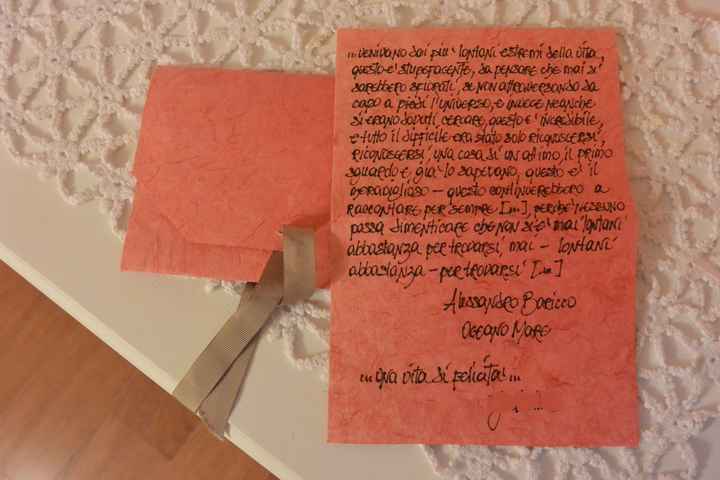 ...venivano dai più lontani estremi della vita,
questo è stupefacente, da pensare che mai si
sarebbero sfiorati, se non attraversando da
capo a piedi l'universo, e invece neanche
si erano dovuti cercare, questo è incredibile,
e tutto il difficile era stato solo riconoscersi,
riconoscersi, una cosa di un attimo, il primo
sguardo e già lo sapevano, questo è il
meraviglioso – questo continuerebbero a
raccontare per sempre [...], perché nessuno
possa dimenticare che non si è mai lontani
abbastanza per trovarsi, mai – lontani
abbastanza – per trovarsi [...]
Alessandro Baricco
Oceano Mare
...una vita di felicità!...